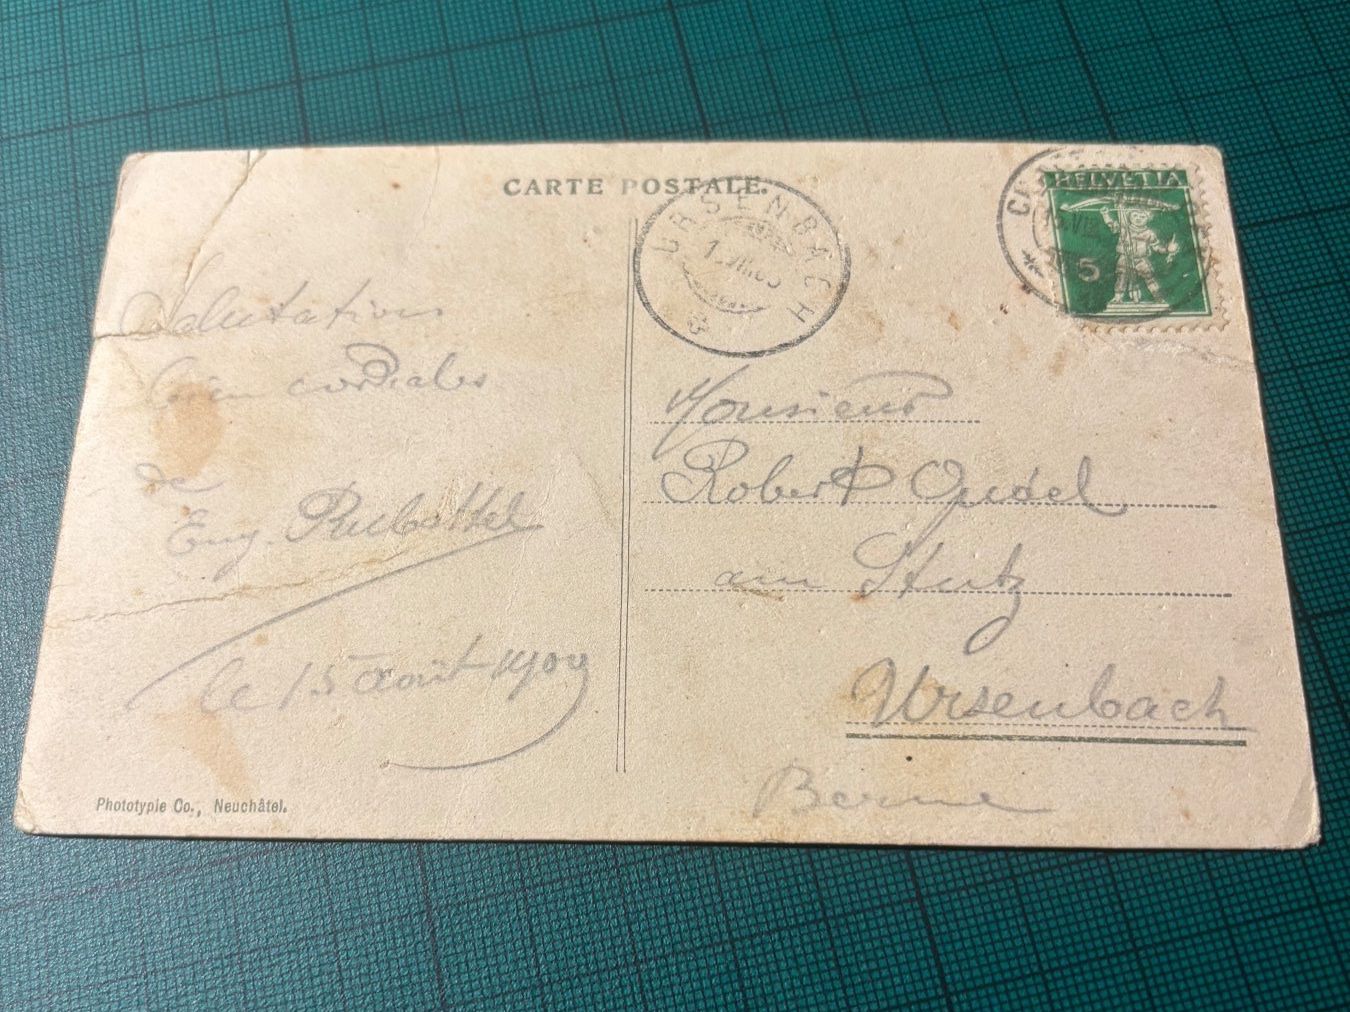 CARTE POSTALE.
URSENBACH
HELVETIA
5
Salutations
bien cordiales
de
Eug.
le 15 août 1909
Monsieur
Robert
am Stutz
Ursenbach
Berne
Phototypie Co., Neuchâtel.